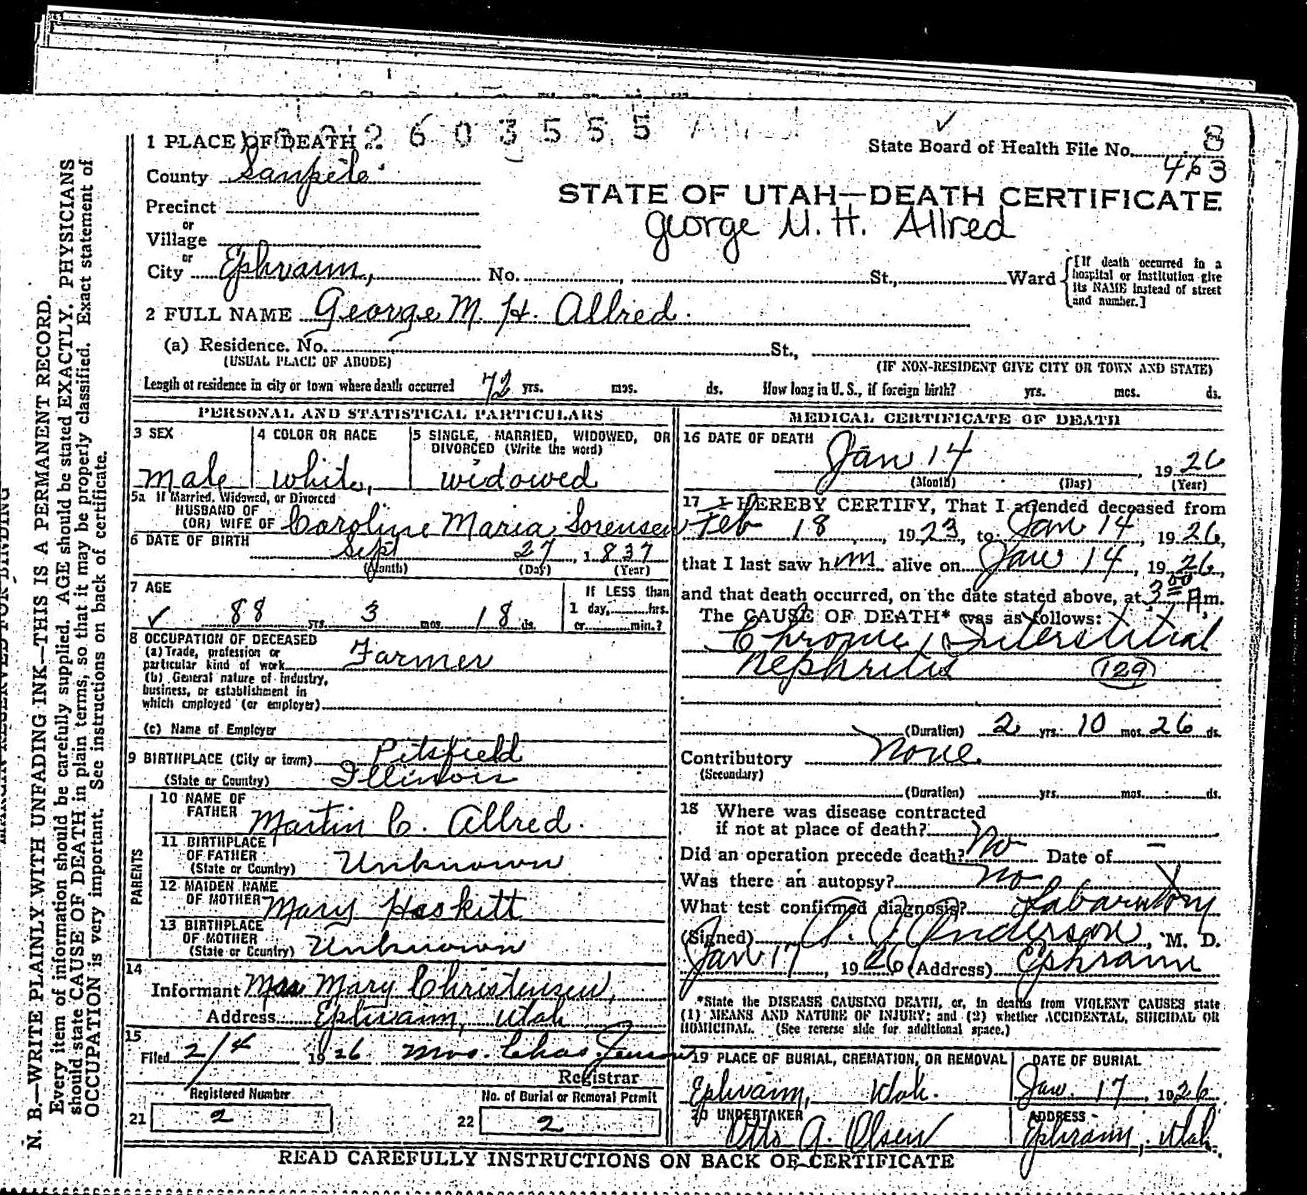 2603555
8
1 PLACE OF DEATH
State Board of Health File No.
463
County Sanpete
STATE OF UTAH—DEATH CERTIFICATE
George M. H. Allred
Precinct
or
Village
or
City Ephraim, No. St., Ward
[If death occurred in a hospital or institution give its NAME instead of street and number.]
2 FULL NAME George M. H. Allred.
(a) Residence. No. St.,
(USUAL PLACE OF ABODE) (IF NON-RESIDENT GIVE CITY OR TOWN AND STATE)
Length of residence in city or town where death occurred 72 yrs. mos. ds. How long in U. S., if foreign birth? yrs. mos. ds.
PERSONAL AND STATISTICAL PARTICULARS
3 SEX 4 COLOR OR RACE 5 SINGLE, MARRIED, WIDOWED, OR DIVORCED (Write the word)
male white, widowed
5a If Married, Widowed, or Divorced
HUSBAND OF
(OR) WIFE OF Caroline Maria Sorensen
6 DATE OF BIRTH Sept 27, 1837
(Month) (Day) (Year)
7 AGE If LESS than
88 yrs. 3 mos. 18 ds. 1 day, hrs.
or min.?
8 OCCUPATION OF DECEASED
(a) Trade, profession or
particular kind of work Farmer
(b) General nature of industry,
business, or establishment in
which employed (or employer)
(c) Name of Employer
9 BIRTHPLACE (City or town) Pitsfield
(State or Country) Illinois
PARENTS
10 NAME OF
FATHER Martin C. Allred.
11 BIRTHPLACE
OF FATHER
(State or Country) Unknown
12 MAIDEN NAME
OF MOTHER Mary Heskitt
13 BIRTHPLACE
OF MOTHER
(State or Country) Unknown
14
Informant Mrs Mary Christensen,
Address Ephraim, Utah
15
Filed 2/4 1926 Mrs. Chas. Jensen
Registrar
Registered Number No. of Burial or Removal Permit
21 2 22 2
MEDICAL CERTIFICATE OF DEATH
16 DATE OF DEATH
Jan 14, 1926
(Month) (Day) (Year)
17 I HEREBY CERTIFY, That I attended deceased from
Feb 18, 1923, to Jan 14, 1926,
that I last saw him alive on Jan 14, 1926,
and that death occurred, on the date stated above, at 3 00 A m.
The CAUSE OF DEATH* was as follows:
Chronic Interstitial
Nephritis (129)
(Duration) 2 yrs. 10 mos. 26 ds.
Contributory None.
(Secondary)
(Duration) yrs. mos. ds.
18 Where was disease contracted
if not at place of death?
Did an operation precede death? No Date of —
Was there an autopsy? no
What test confirmed diagnosis? Labaratory
(Signed) Anderson, M. D.
Jan 17, 1926 (Address) Ephraim
*State the DISEASE CAUSING DEATH, or, in deaths from VIOLENT CAUSES state
(1) MEANS AND NATURE OF INJURY; and (2) whether ACCIDENTAL, SUICIDAL OR
HOMICIDAL. (See reverse side for additional space.)
19 PLACE OF BURIAL, CREMATION, OR REMOVAL DATE OF BURIAL
Ephraim, Utah. Jan. 17, 1926
20 UNDERTAKER ADDRESS
Otto A. Olsen Ephraim, Utah.
READ CAREFULLY INSTRUCTIONS ON BACK OF CERTIFICATE
N. B.—WRITE PLAINLY WITH UNFADING INK—THIS IS A PERMANENT RECORD.
Every item of information should be carefully supplied. AGE should be stated EXACTLY. PHYSICIANS
should state CAUSE OF DEATH in plain terms, so that it may be properly classified. Exact statement of
OCCUPATION is very important. See instructions on back of certificate.